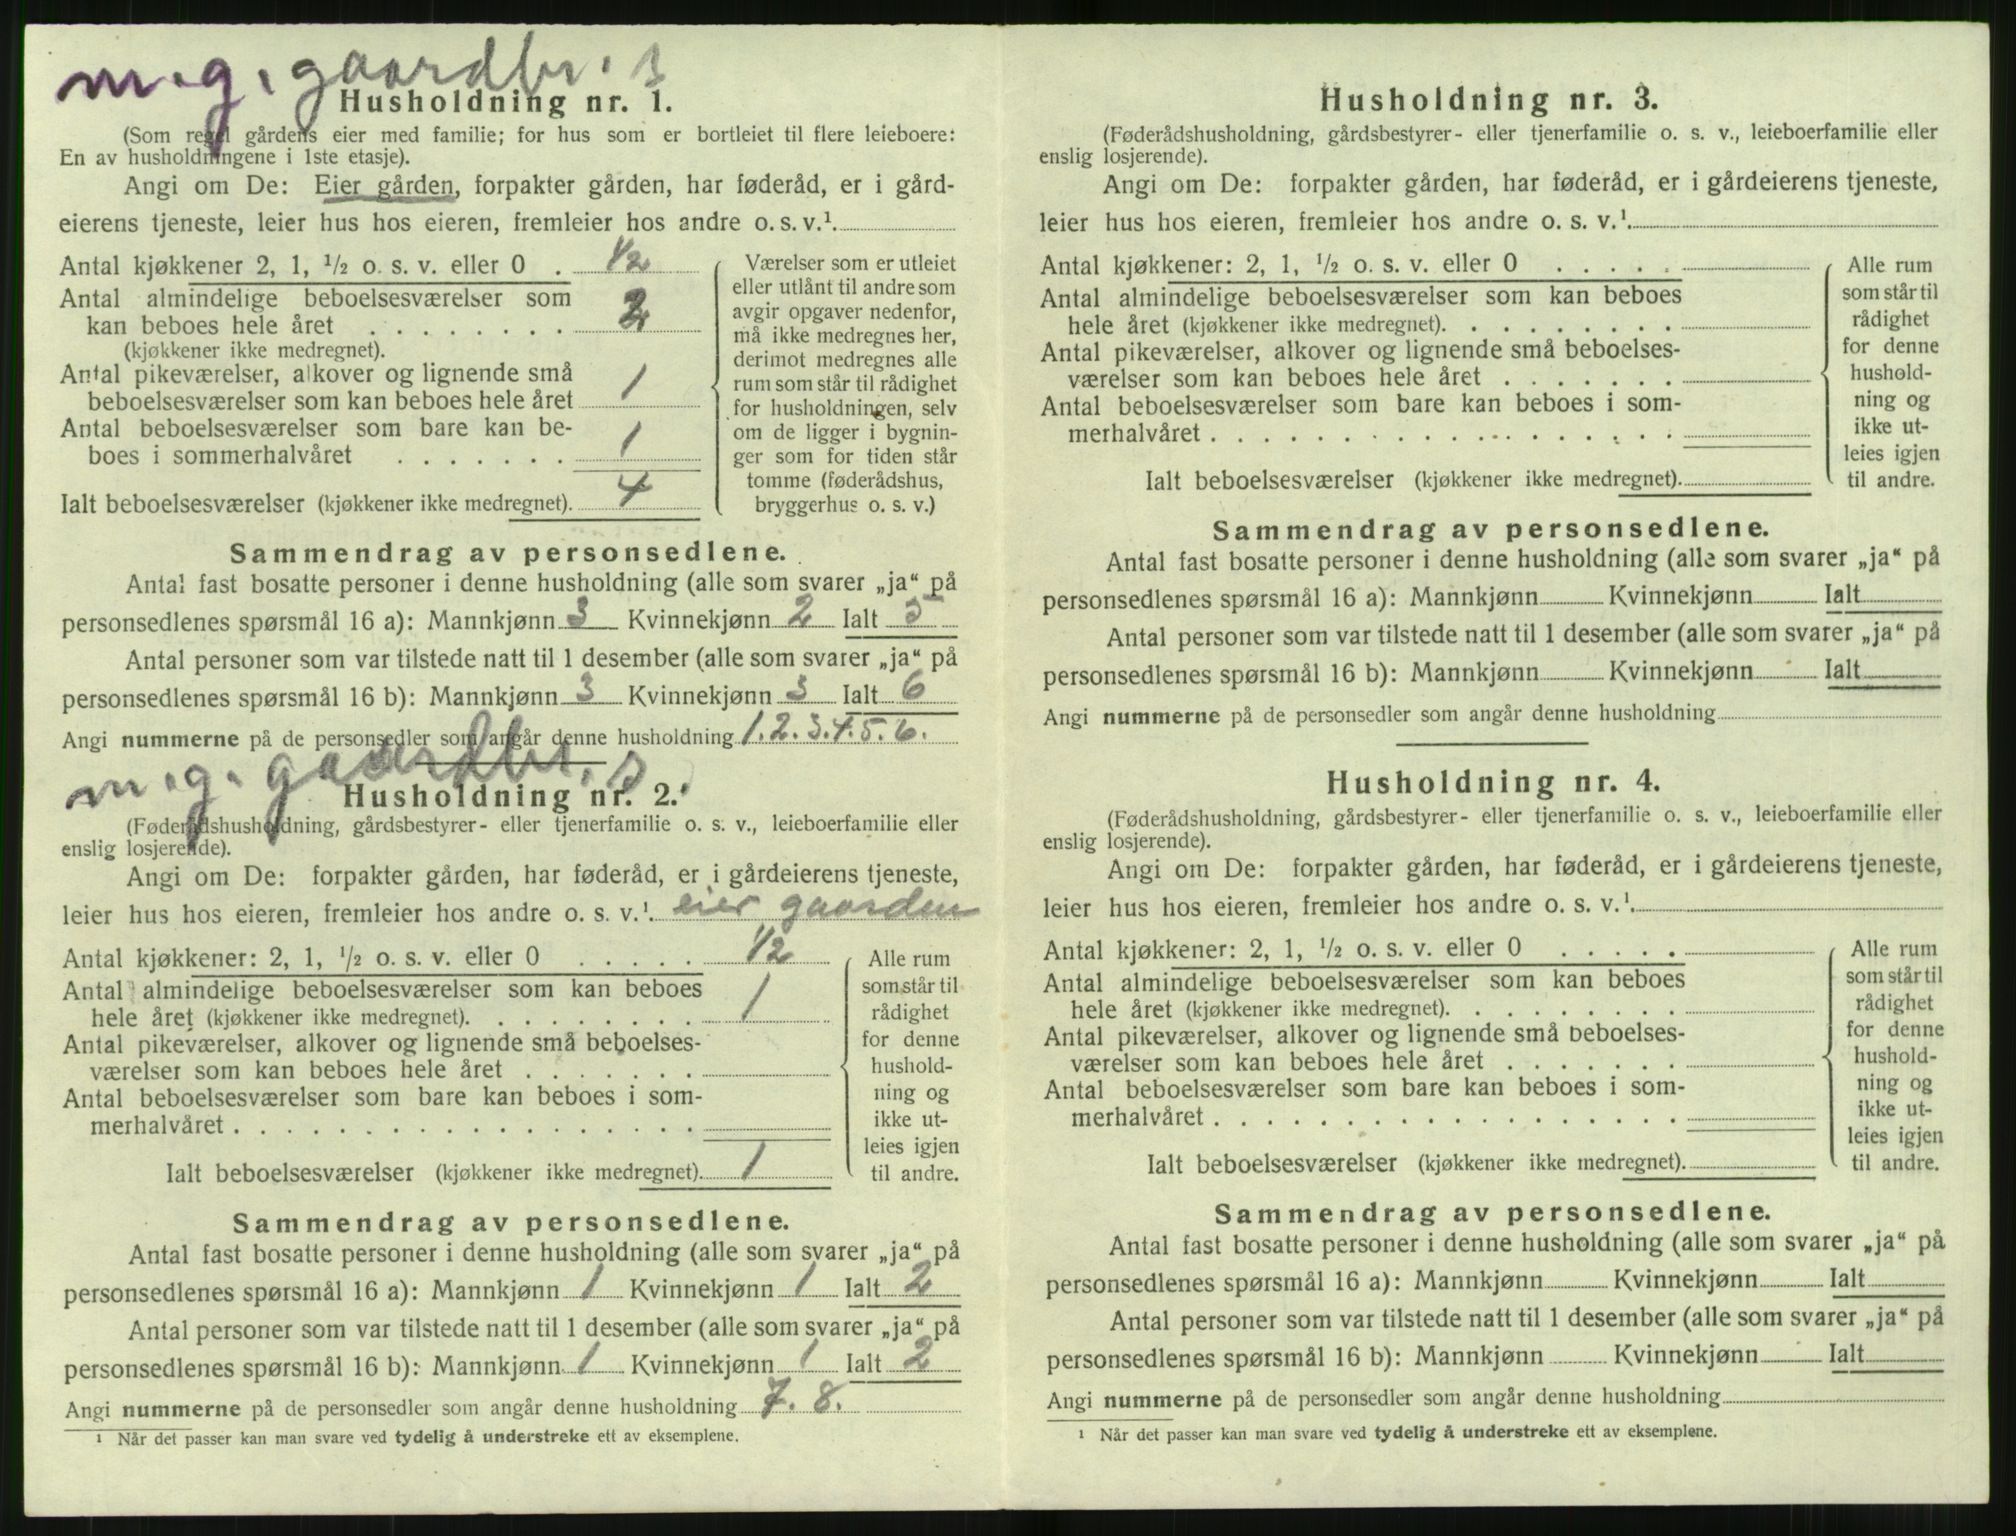 m.g. gaardbr. s
Husholdning nr. 1.
(Som regel gårdens eier med familie; for hus som er bortleiet til flere leieboere:
En av husholdningene i 1ste etasje).
Angi om De: Eier gården, forpakter gården, har føderåd, er i gård-
eierens tjeneste, leier hus hos eieren, fremleier hos andre o. s. v.¹.
Antal kjøkkener 2, 1, ½ o. s. v. eller 0 . ½
Antal almindelige beboelsesværelser som
kan beboes hele året . . . . . . . . 2
(kjøkkener ikke medregnet).
Antal pikeværelser, alkover og lignende små
beboelsesværelser som kan beboes hele året 1
Antal beboelsesværelser som bare kan be-
boes i sommerhalvåret . . . . . . . 1
Ialt beboelsesværelser (kjøkkener ikke medregnet). 4
Værelser som er utleiet
eller utlånt til andre som
avgir opgaver nedenfor,
må ikke medregnes her,
derimot medregnes alle
rum som står til rådighet
for husholdningen, selv
om de ligger i bygnin-
ger som for tiden står
tomme (føderådshus,
bryggerhus o. s. v.)
Sammendrag av personsedlene.
Antal fast bosatte personer i denne husholdning (alle som svarer „ja“ på
personsedlenes spørsmål 16 a): Mannkjønn 3 Kvinnekjønn 2 Ialt 5
Antal personer som var tilstede natt til 1 desember (alle som svarer „ja“ på
personsedlenes spørsmål 16 b): Mannkjønn 3 Kvinnekjønn 3 Ialt 6
Angi nummerne på de personsedler som angår denne husholdning 1.2.3.4.5.6.
m.g. gaardbr. s
Husholdning nr. 2.
(Føderådshusholdning, gårdsbestyrer- eller tjenerfamilie o. s. v., leieboerfamilie eller
enslig losjerende).
Angi om De: forpakter gården, har føderåd, er i gårdeierens tjeneste,
leier hus hos eieren, fremleier hos andre o. s. v.¹. eier gaarden
Antal kjøkkener: 2, 1, ½ o. s. v. eller 0 . . . . . ½
Antal almindelige beboelsesværelser som kan beboes
hele året (kjøkkener ikke medregnet). . . . . . . . . 1
Antal pikeværelser, alkover og lignende små beboelses-
værelser som kan beboes hele året . . . . . . .
Antal beboelsesværelser som bare kan beboes i som-
merhalvåret . . . . . . . . . . . . . . . . . .
Ialt beboelsesværelser (kjøkkener ikke medregnet). 1
Alle rum
som står til
rådighet
for denne
hushold-
ning og
ikke ut-
leies igjen
til andre.
Sammendrag av personsedlene.
Antal fast bosatte personer i denne husholdning (alle som svarer „ja“ på
personsedlenes spørsmål 16 a): Mannkjønn 1 Kvinnekjønn 1 Ialt 2
Antal personer som var tilstede natt til 1 desember (alle som svarer „ja“ på
personsedlenes spørsmål 16 b): Mannkjønn 1 Kvinnekjønn 1 Ialt 2
Angi nummerne på de personsedler som angår denne husholdning 7. 8.
¹ Når det passer kan man svare ved tydelig å understreke ett av eksemplene.
Husholdning nr. 3.
(Føderådshusholdning, gårdsbestyrer- eller tjenerfamilie o. s. v., leieboerfamilie eller
enslig losjerende).
Angi om De: forpakter gården, har føderåd, er i gårdeierens tjeneste,
leier hus hos eieren, fremleier hos andre o. s. v.¹.
Antal kjøkkener: 2, 1, ½ o. s. v. eller 0 . . . . .
Antal almindelige beboelsesværelser som kan beboes
hele året (kjøkkener ikke medregnet). . . . . . . . .
Antal pikeværelser, alkover og lignende små beboelses-
værelser som kan beboes hele året . . . . . . .
Antal beboelsesværelser som bare kan beboes i som-
merhalvåret . . . . . . . . . . . . . . . . . .
Ialt beboelsesværelser (kjøkkener ikke medregnet).
Alle rum
som står til
rådighet
for denne
hushold-
ning og
ikke ut-
leies igjen
til andre.
Sammendrag av personsedlene.
Antal fast bosatte personer i denne husholdning (alle som svarer „ja“ på
personsedlenes spørsmål 16 a): Mannkjønn Kvinnekjønn Ialt
Antal personer som var tilstede natt til 1 desember (alle som svarer „ja“ på
personsedlenes spørsmål 16 b): Mannkjønn Kvinnekjønn Ialt
Angi nummerne på de personsedler som angår denne husholdning
Husholdning nr. 4.
(Føderådshusholdning, gårdsbestyrer- eller tjenerfamilie o. s. v., leieboerfamilie eller
enslig losjerende).
Angi om De: forpakter gården, har føderåd, er i gårdeierens tjeneste,
leier hus hos eieren, fremleier hos andre o. s. v.¹.
Antal kjøkkener: 2, 1, ½ o. s. v. eller 0 . . . . .
Antal almindelige beboelsesværelser som kan beboes
hele året (kjøkkener ikke medregnet). . . . . . . . .
Antal pikeværelser, alkover og lignende små beboelses-
værelser som kan beboes hele året . . . . . . .
Antal beboelsesværelser som bare kan beboes i som-
merhalvåret . . . . . . . . . . . . . . . . . .
Ialt beboelsesværelser (kjøkkener ikke medregnet).
Alle rum
som står til
rådighet
for denne
hushold-
ning og
ikke ut-
leies igjen
til andre.
Sammendrag av personsedlene.
Antal fast bosatte personer i denne husholdning (alle som svarer „ja“ på
personsedlenes spørsmål 16 a): Mannkjønn Kvinnekjønn Ialt
Antal personer som var tilstede natt til 1 desember (alle som svarer „ja“ på
personsedlenes spørsmål 16 b): Mannkjønn Kvinnekjønn Ialt
Angi nummerne på de personsedler som angår denne husholdning
¹ Når det passer kan man svare ved tydelig å understreke ett av eksemplene.